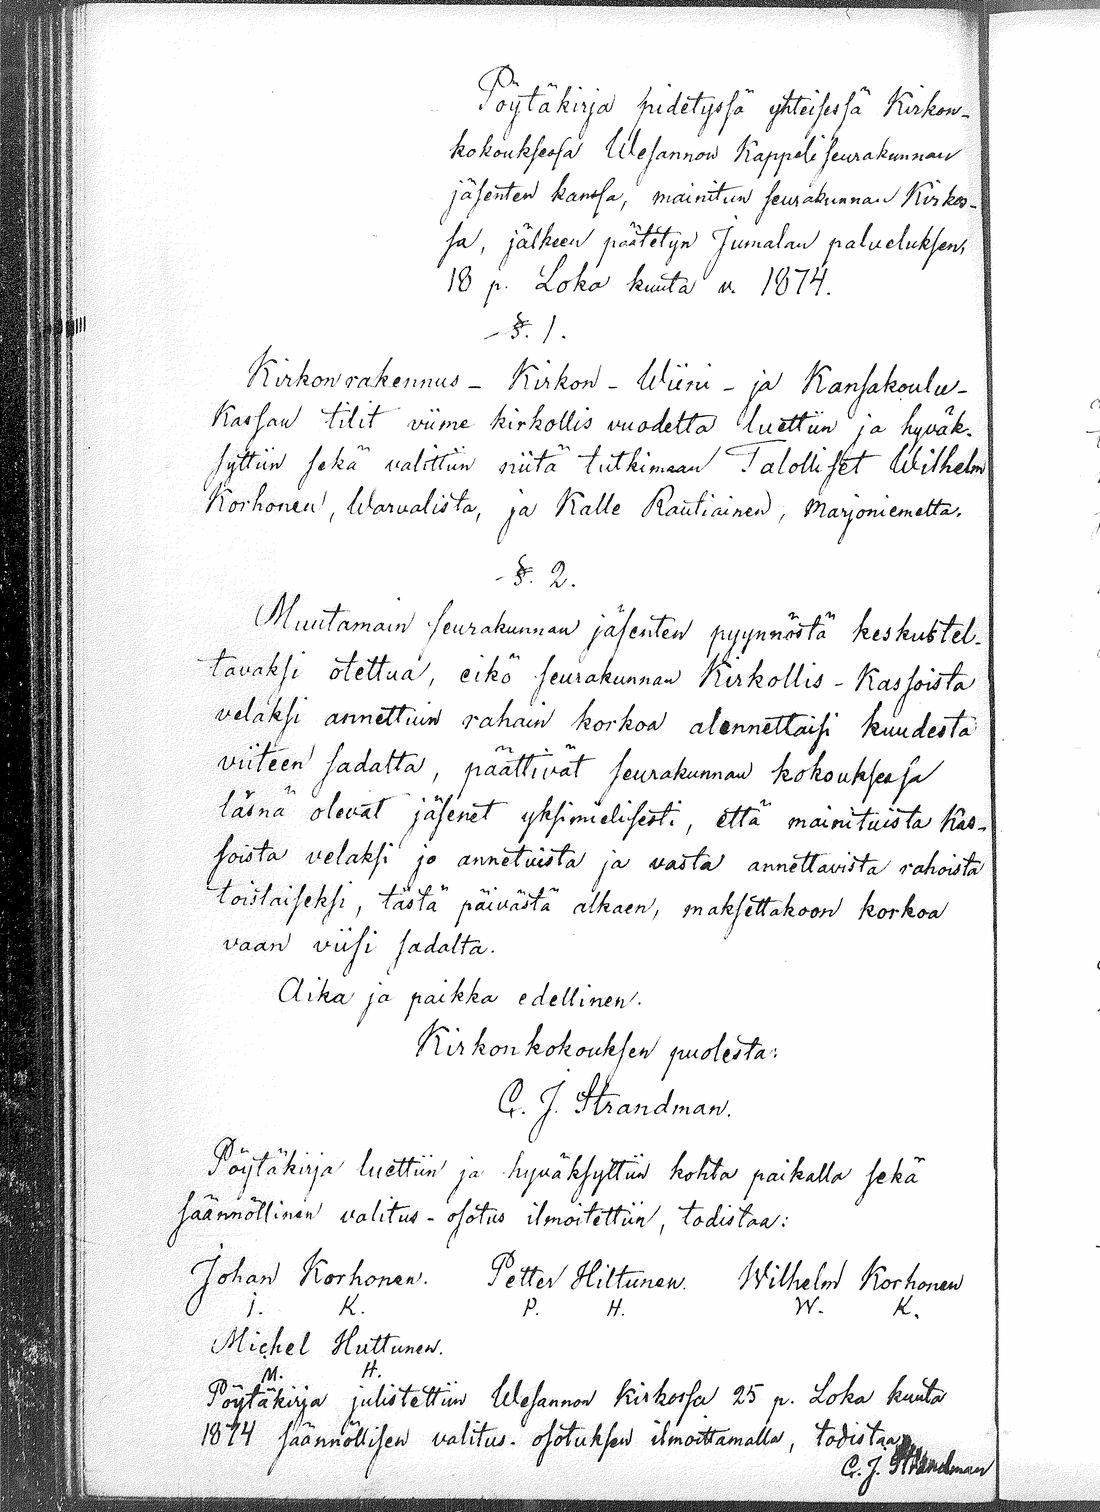 Pöytäkirja pidetyssä yhteisessä Kirkon-
kokouksessa Wesannon Kappeliseurakunnan
jäsenten kanssa, mainitun seurakunnan Kirkos-
sa, jälkeen päätetyn Jumalan palveluksen,
18 p. Loka kuuta v. 1874.
§. 1.
Kirkonrakennus - Kirkon - Wiini - ja Kansakoulu-
Kassan tilit viime kirkollis vuodelta luettiin ja hyväk-
syttiin sekä valittiin niitä tutkimaan Talolliset Wilhelm
Korhonen, Warvalista, ja Kalle Rautiainen, Marjoniemeltä.
§. 2.
Muutamain seurakunnan jäsenten pyynnöstä keskustel-
tavaksi otettua, eikö seurakunnan Kirkollis - Kassoista
velaksi annettuin rahain korkoa alennettaisi kuudesta
viiteen sadalta, päättivät seurakunnan kokouksessa
läsnä olevat jäsenet yksimielisesti, että mainituista Kas-
soista velaksi jo annetuista ja vasta annettavista rahoista
toistaiseksi, tästä päivästä alkaen, maksettakoon korkoa
vaan viisi sadalta.
Aika ja paikka edellinen.
Kirkonkokouksen puolesta:
C. J. Strandman.
Pöytäkirja luettiin ja hyväksyttiin kohta paikalla sekä
säännöllinen valitus - osotus ilmoitettiin, todistaa:
Johan Korhonen. Petter Hiltunen. Wilhelm Korhonen
J. K. P. H. W. K.
Michel Huttunen.
M. H.
Pöytäkirja julistettiin Wesannon Kirkossa 25 p. Loka kuuta
1874 säännöllisen valitus - osotuksen ilmoittamalla, todistaa
C. J. Strandman